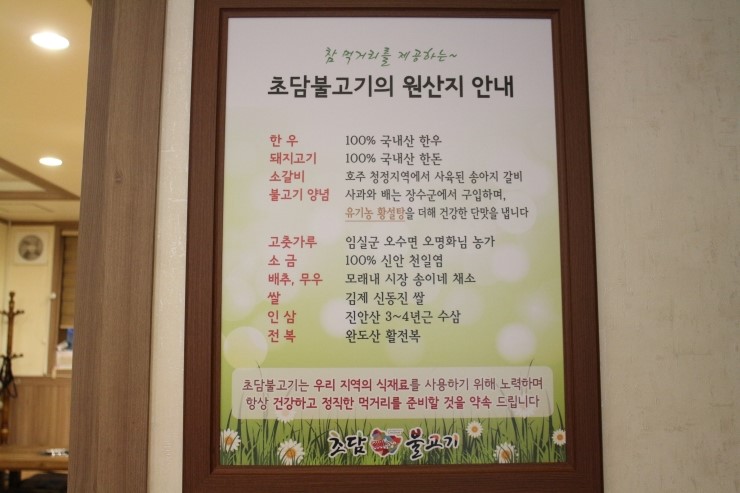 참 먹거리를 제공하는~
초담불고기의 원산지 안내
한 우 100% 국내산 한우
돼지고기 100% 국내산 한돈
소갈비 호주 청정지역에서 사육된 송아지 갈비
불고기 양념 사과와 배는 장수군에서 구입하며,
유기농 황설탕을 더해 건강한 단맛을 냅니다
고춧가루 임실군 오수면 오명화님 농가
소 금 100% 신안 천일염
배추, 무우 모래내 시장 송이네 채소
쌀 김제 신동진 쌀
인 삼 진안산 3~4년근 수삼
전 복 완도산 활전복
초담불고기는 우리 지역의 식재료를 사용하기 위해 노력하며
항상 건강하고 정직한 먹거리를 준비할 것을 약속 드립니다
초담 불고기